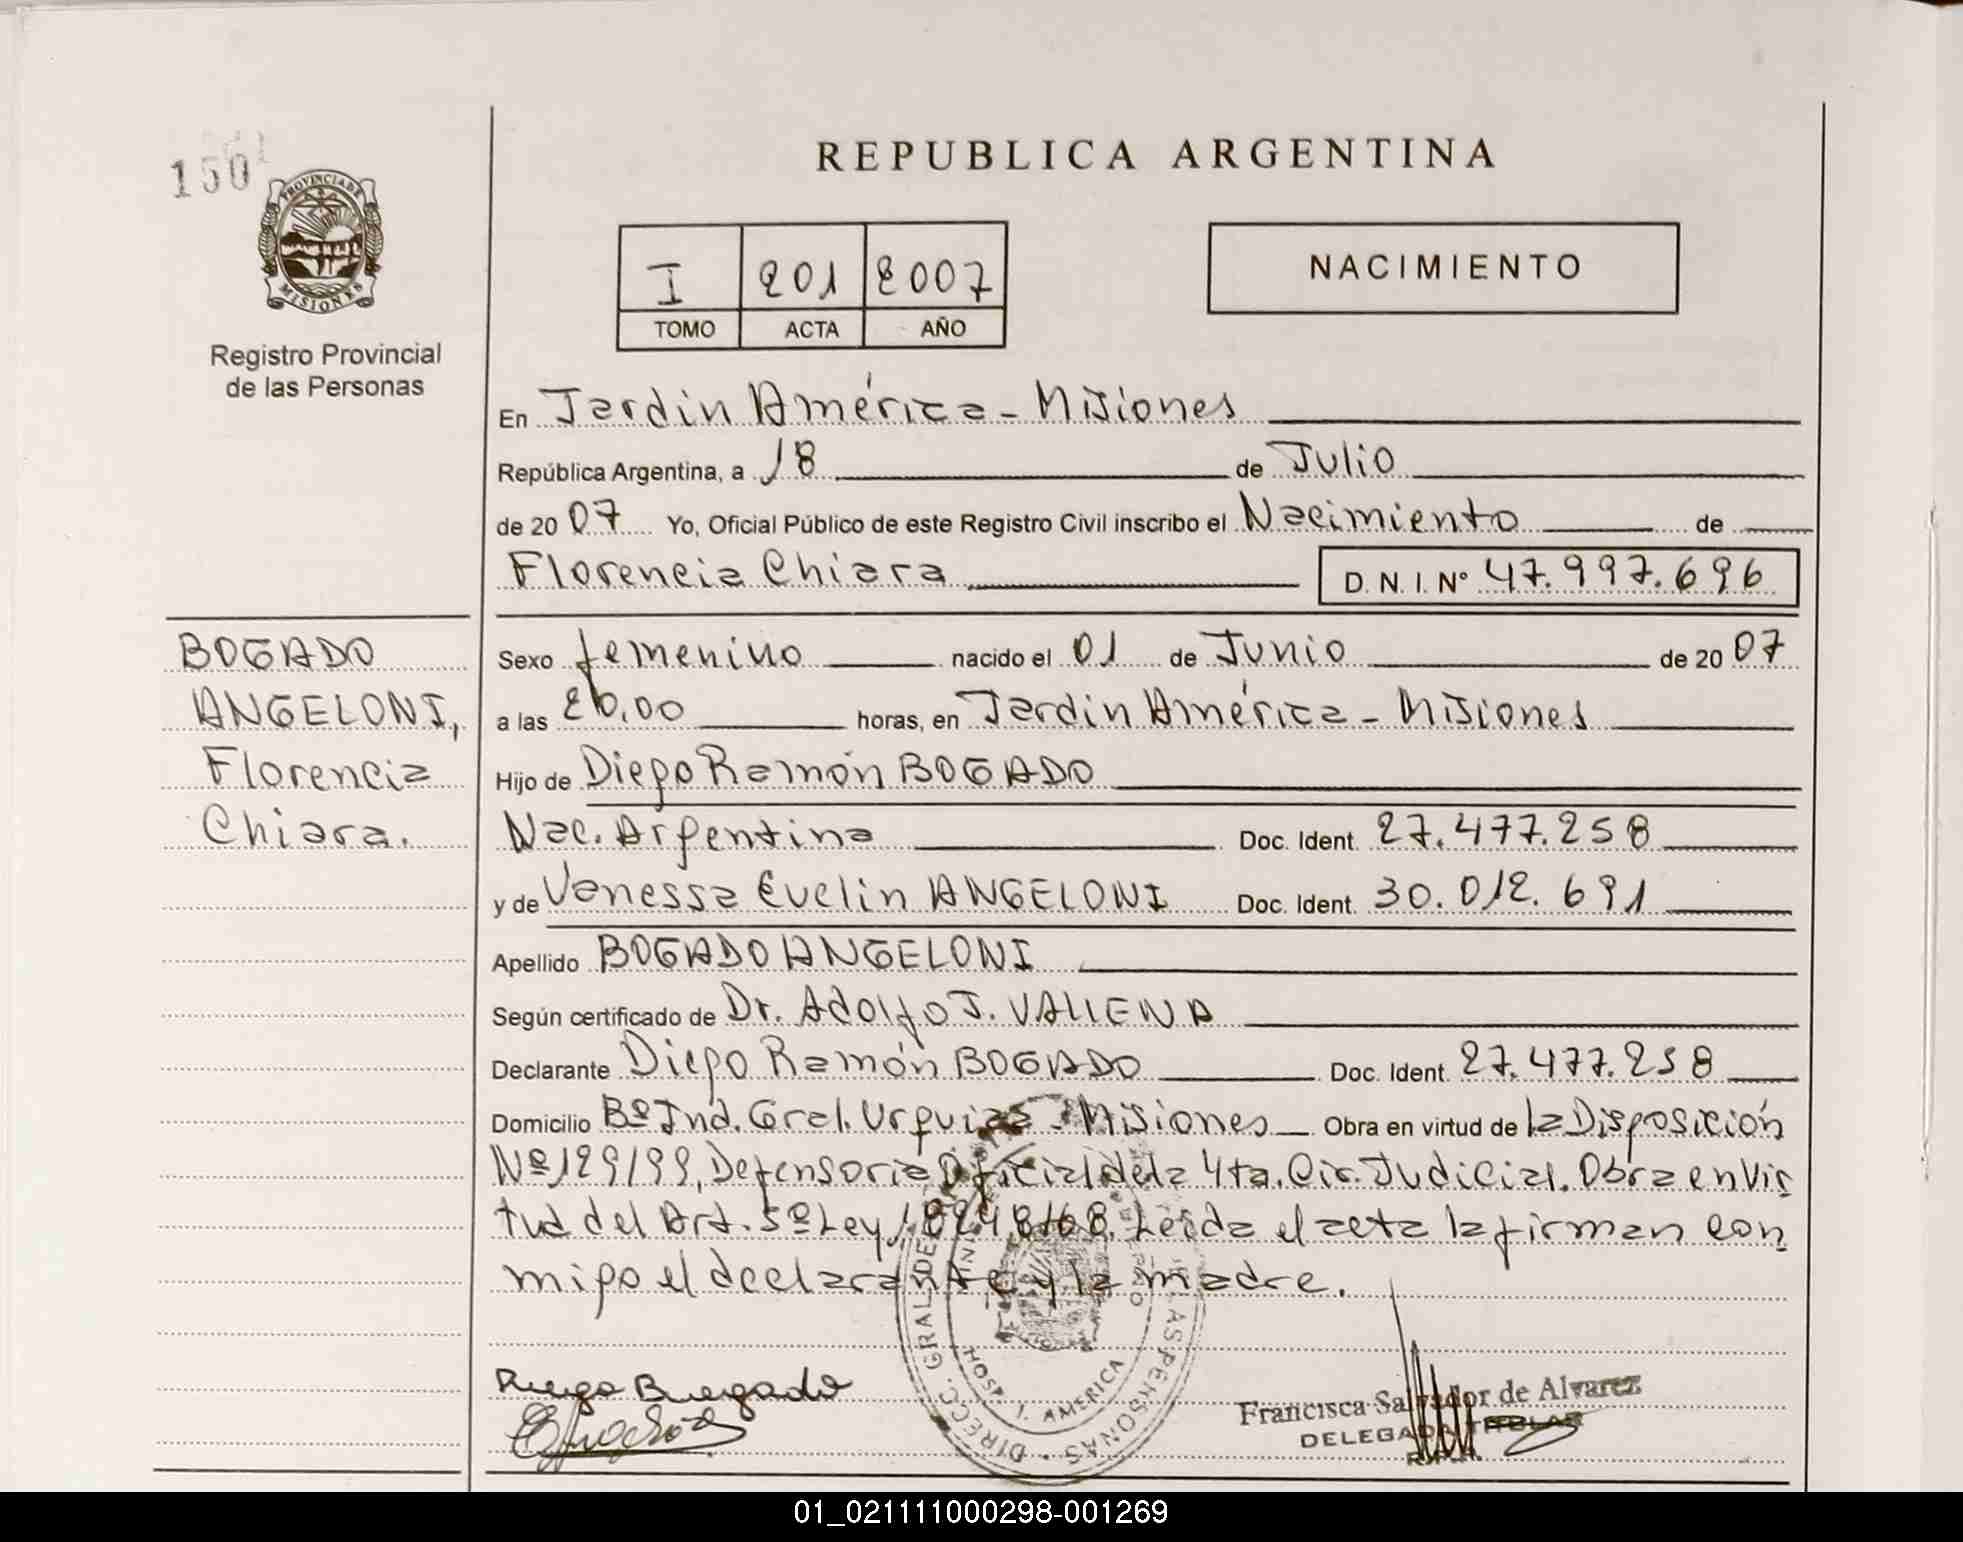 150
PROVINCIA DE
MISIONES
Registro Provincial
de las Personas
REPUBLICA ARGENTINA
I 201 2007
TOMO ACTA AÑO
NACIMIENTO
En Jardín América - Misiones
República Argentina, a 18 de Julio
de 2007 Yo, Oficial Público de este Registro Civil inscribo el Nacimiento de
Florencia Chiara D. N. I. N° 47.997.696
BOGADO
ANGELONI,
Florencia
Chiara.
Sexo femenino nacido el 01 de Junio de 2007
a las 20,00 horas, en Jardín América - Misiones
Hijo de Diego Ramón BOGADO
Nac. Argentina Doc. Ident. 27.477.258
y de Vanessa Evelin ANGELONI Doc. Ident. 30.012.691
Apellido BOGADO ANGELONI
Según certificado de Dr. Adolfo J. VALLENA
Declarante Diego Ramón BOGADO Doc. Ident. 27.477.258
Domicilio Bº Ind. Gral. Urquiza - Misiones Obra en virtud de la Disposición
Nº 129/99, Defensoria Oficial de la 4ta. Cir. Judicial. Obra en vir
tud del Art. 5º Ley 18248/68. Leída el acta la firman con
migo el declarante y la madre.
DIRECC. GRAL. DE LAS PERSONAS
HOSP. J. AMERICA
Francisca Salvador de Alvarez
DELEGADA TITULAR
01_021111000298-001269